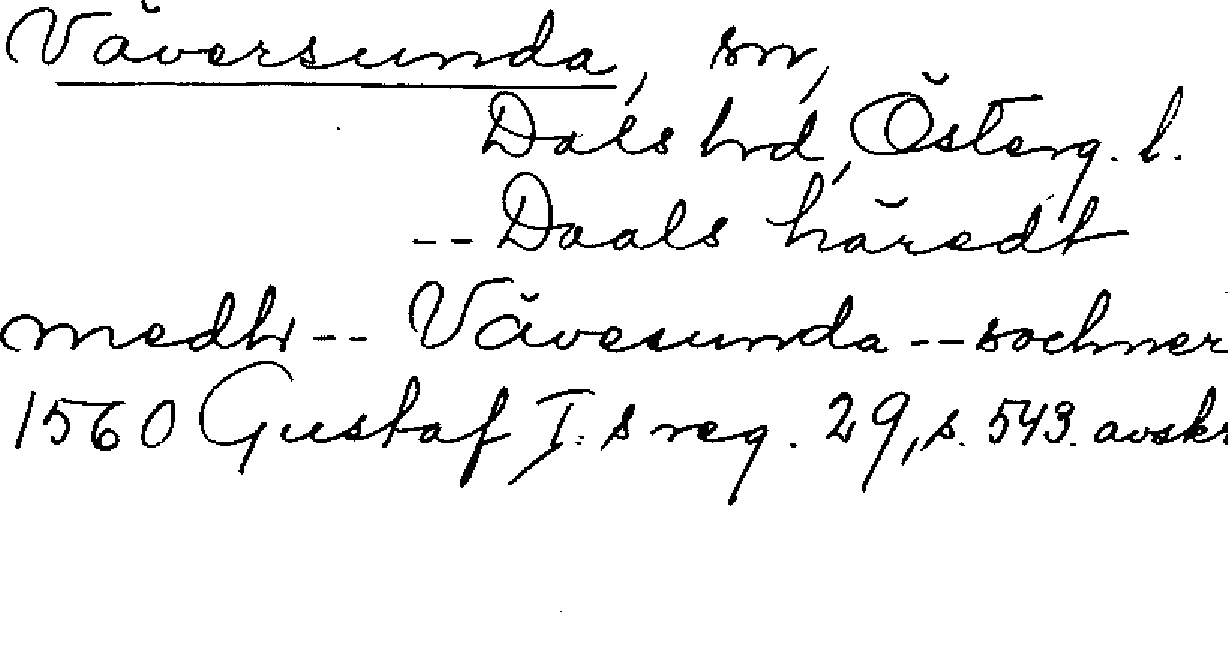 Väversunda, sn,
Dals hrd, Österg. l.
-- Daals häredt
medh -- Vävesunda -- sochner
1560 Gustaf I:s reg. 29, s. 543. avskr